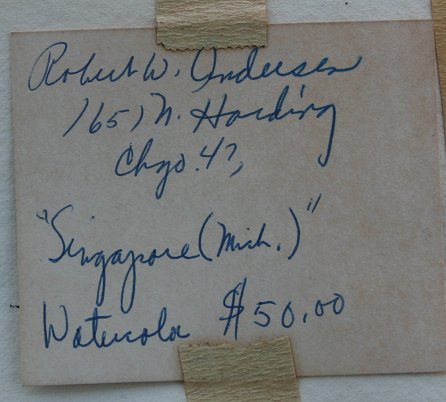 Robert W. Andersen
1651 N. Harding
Chgo. 47,
"Singapore (Mich.)"
Watercolor $50.00